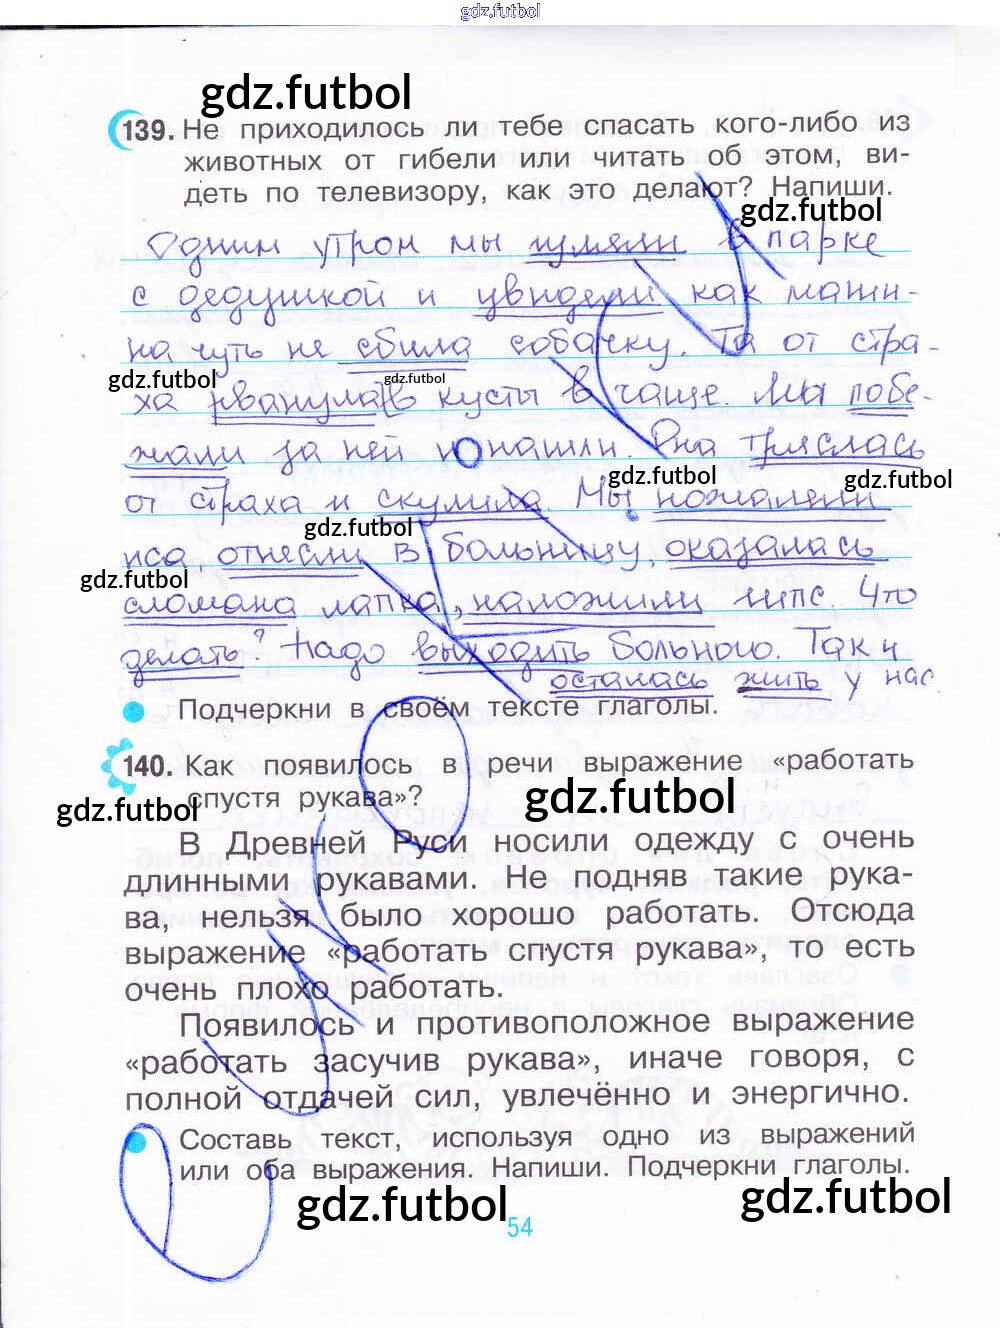 gdz.futbol
gdz.futbol
139. Не приходилось ли тебе спасать кого-либо из
животных от гибели или читать об этом, ви-
деть по телевизору, как это делают? Напиши.
gdz.futbol
Одним утром мы гуляли в парке
с дедушкой и увидели как маши-
на чуть не сбила собачку. Та от стра-
gdz.futbol gdz.futbol
ха рванула в кусты в чаще. Мы побе-
жали за ней и нашли. Она тряслась
gdz.futbol gdz.futbol
от страха и скулила. Мы пожалели
gdz.futbol
пса, отнесли в больницу, оказалась
gdz.futbol
сломана лапка, наложили гипс. Что
делать? Надо выходить больного. Так и
осталась жить у нас
Подчеркни в своём тексте глаголы.
140. Как появилось в речи выражение «работать
спустя рукава»?
gdz.futbol gdz.futbol
В Древней Руси носили одежду с очень
длинными рукавами. Не подняв такие рука-
ва, нельзя было хорошо работать. Отсюда
выражение «работать спустя рукава», то есть
очень плохо работать.
Появилось и противоположное выражение
«работать засучив рукава», иначе говоря, с
полной отдачей сил, увлечённо и энергично.
Составь текст, используя одно из выражений
или оба выражения. Напиши. Подчеркни глаголы.
gdz.futbol gdz.futbol
54